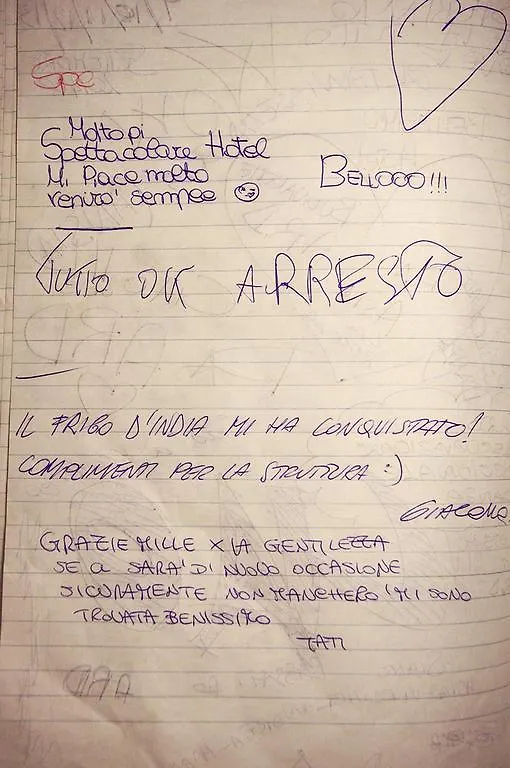 Spe
Molto pi
Spettacolare Hotel
Mi Piace molto
verirò sempre
BELLOOO!!!
TUTTO OK ARRESTO
IL FRIGO D'INDIA MI HA CONQUISTATO!
COMPLIMENTI PER LA STRUTTURA :)
GIACOMO.
GRAZIE MILLE X LA GENTILEZZA
SE CI SARA' DI NUOVO OCCASIONE
SICURAMENTE NON MANCHERO' MI SONO
TROVATA BENISSIMO
TATI